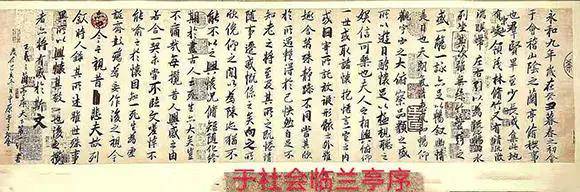 永和九年歲在癸丑暮春之初會
于會稽山陰之蘭亭脩稧事
也群賢畢至少長咸集此地
有崇山峻領茂林脩竹又有清流激
湍暎帶左右引以為流觴曲水
列坐其次雖無絲竹管弦之
盛一觴一詠亦足以暢敘幽情
是日也天朗氣清惠風和暢仰
觀宇宙之大俯察品類之盛
所以遊目騁懷足以極視聽之
娛信可樂也夫人之相與俯仰
一世或取諸懷抱悟言一室之內
或因寄所託放浪形骸之外雖
趣舍萬殊靜躁不同當其欣
於所遇蹔得於己怏然自足不
知老之將至及其所之既惓情
隨事遷感慨係之矣向之所
欣俛仰之閒以為陳迹猶不
能不以之興懷況脩短隨化終
期於盡古人云死生亦大矣豈
不痛哉每攬昔人興感之由
若合一契未嘗不臨文嗟悼不
能喻之於懷固知一死生為虛
誕齊彭殤為妄作後之視今
亦由今之視昔悲夫故列
敘時人錄其所述雖世殊事
異所以興懷其致一也後之攬
者亦將有感於斯文
于社会临兰亭序